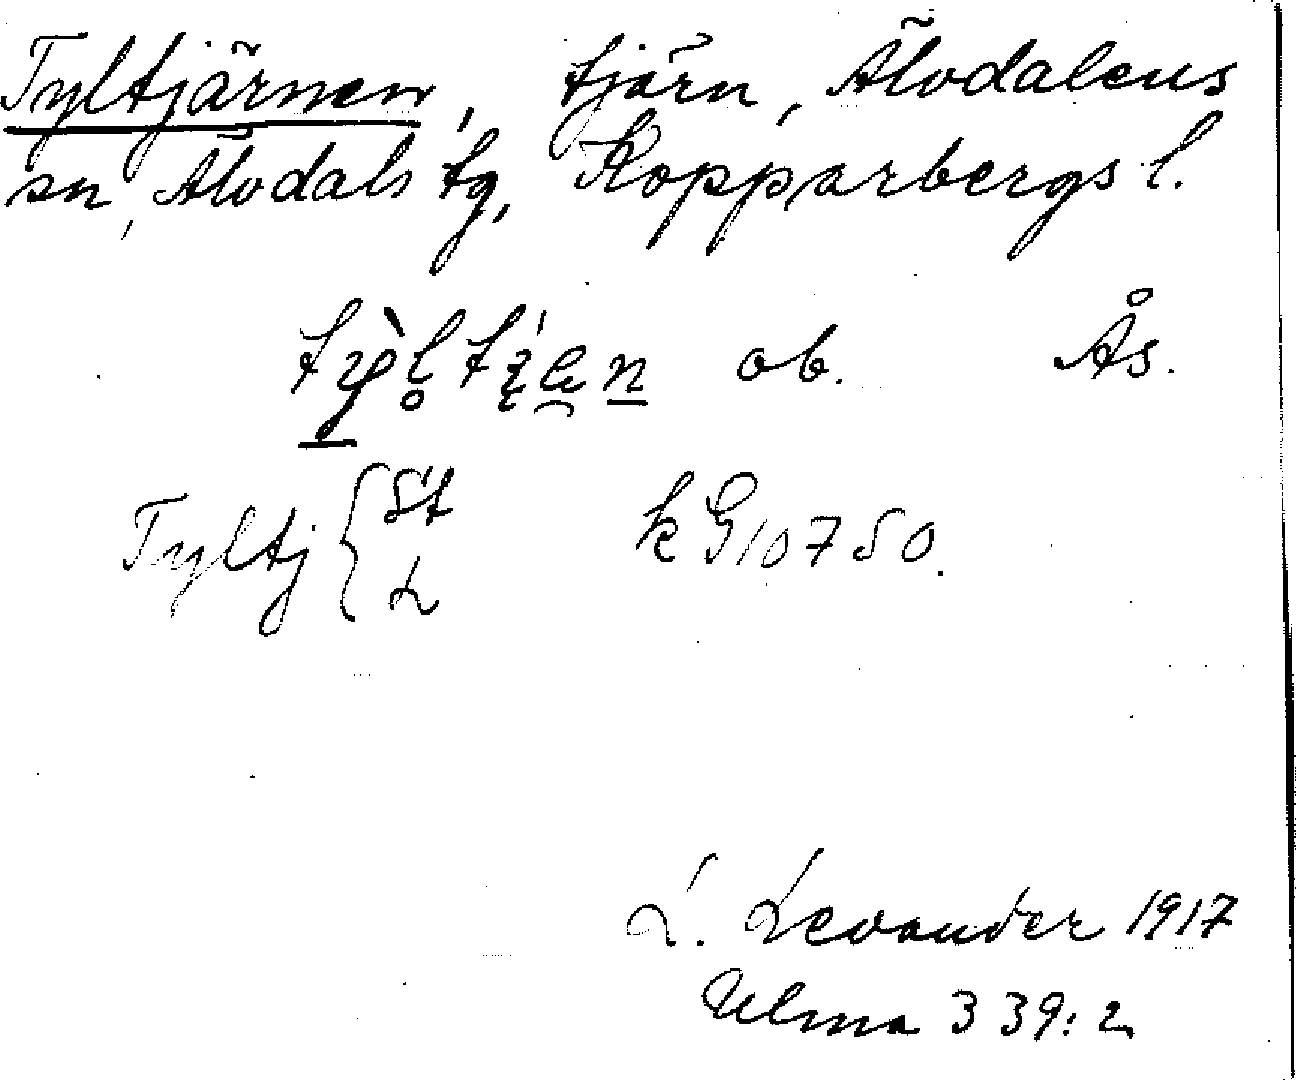 Tyltjärnen, tjärn, Älvdalens
sn, Älvdals tg, Kopparbergs l.
ob. Ås.
Tyltj { St
L
kG10750.
L. Levander 1917
Ulma 339:2